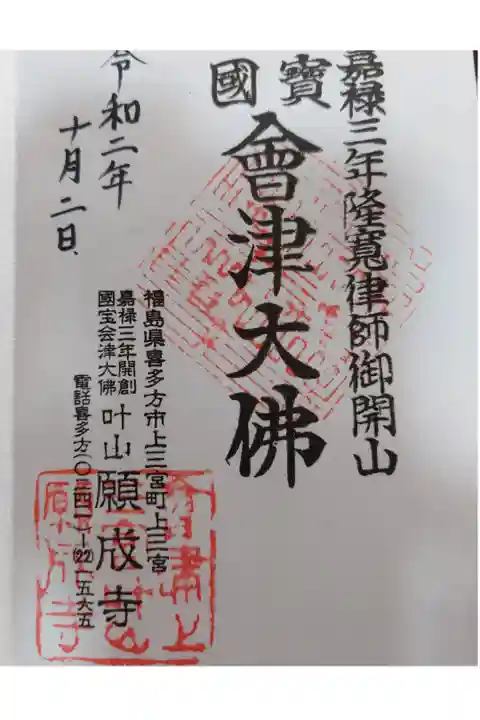 嘉禄三年隆寛律師御開山
寶國
會津大佛
福島県喜多方市上三宮町上三宮
嘉禄三年開創
国宝会津大佛
叶山願成寺
電話喜多方(〇二四一)-(22)一五六五
令和二年
十月二日
會津上
三宮叶山
願成寺